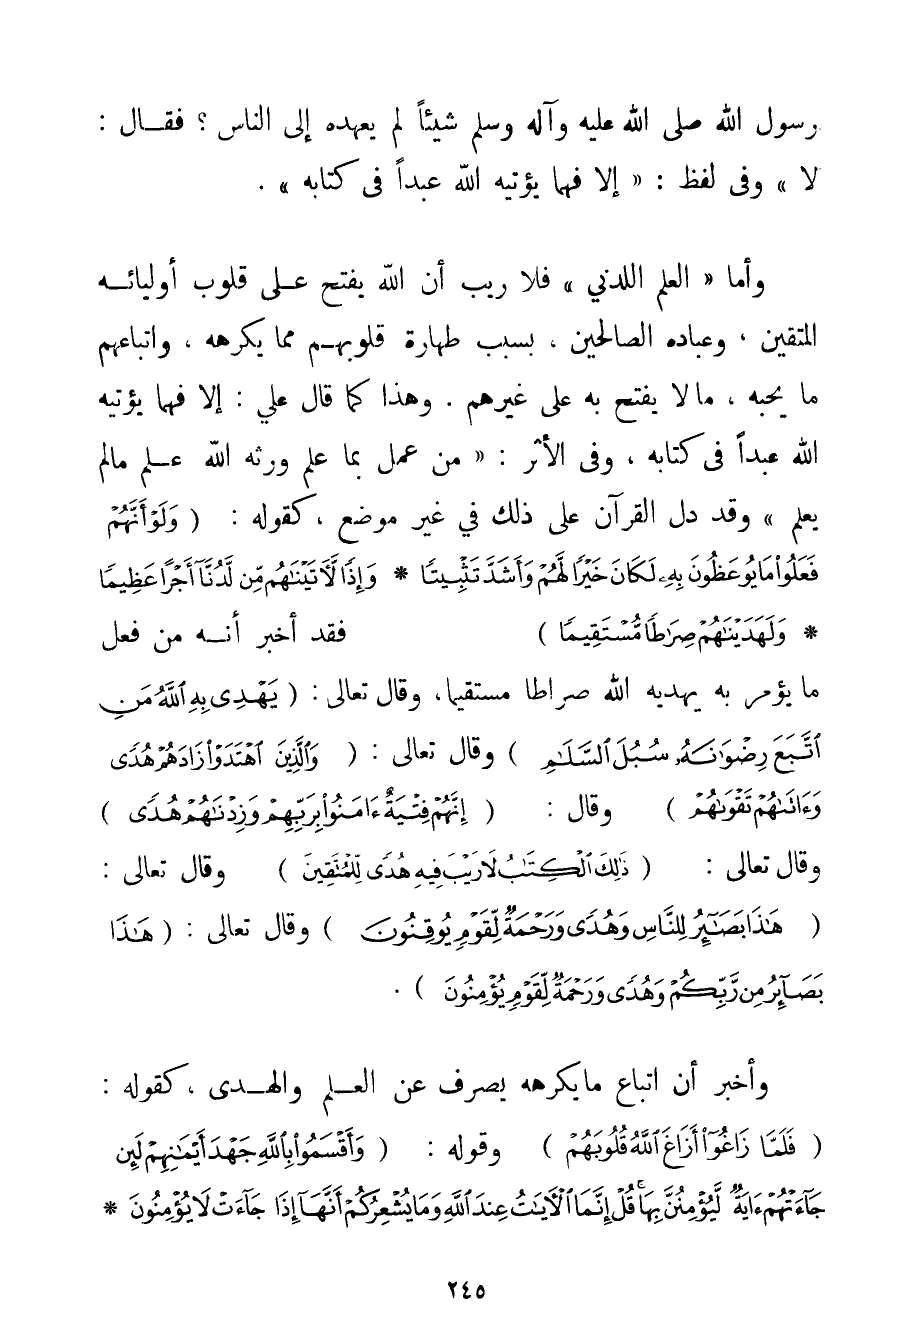 رسول الله صلى الله عليه وآله وسلم شيئاً لم يعهده إلى الناس ؟ فقـــال :
لا » وفى لفظ : « إلا فهما يؤتيه الله عبداً فى كتابه » .
وأما « العلم اللدني » فلا ريب أن الله يفتح عـلى قلوب أوليائــه
المتقين ، وعباده الصالحين ، بسبب طهارة قلوبهـم مما يكرهه ، واتباعهم
ما يحبه ، مالا يفتح به على غيرهم . وهذا كما قال علي : إلا فهما يؤتيه
الله عبداً فى كتابه ، وفى الأثر : « من عمل بما علم ورثه الله عـلم مالم
يعلم » وقد دل القرآن على ذلك في غير موضع ، كقوله : ( وَلَوْأَنَّهُمْ
فَعَلُوا۟ مَا يُوعَظُونَ بِهِۦ لَكَانَ خَيْرًا لَّهُمْ وَأَشَدَّ تَثْبِيتًا * وَإِذًا لَّآتَيْنَٰهُم مِّن لَّدُنَّآ أَجْرًا عَظِيمًا
* وَلَهَدَيْنَٰهُمْ صِرَٰطًا مُّسْتَقِيمًا ) فقد أخبر أنــه من فعل
ما يؤمر به يهديه الله صراطا مستقيما، وقال تعالى : ( يَهْدِى بِهِ ٱللَّهُ مَنِ
ٱتَّبَعَ رِضْوَٰنَهُۥ سُبُلَ ٱلسَّلَٰمِ ) وقال تعالى : ( وَٱلَّذِينَ ٱهْتَدَوْا۟ زَادَهُمْ هُدًى
وَءَاتَىٰهُمْ تَقْوَىٰهُمْ ) وقال : ( إِنَّهُمْ فِتْيَةٌ ءَامَنُوا۟ بِرَبِّهِمْ وَزِدْنَٰهُمْ هُدًى )
وقال تعالى : ( ذَٰلِكَ ٱلْكِتَٰبُ لَا رَيْبَ فِيهِ هُدًى لِّلْمُتَّقِينَ ) وقال تعالى :
( هَٰذَا بَصَٰٓئِرُ لِلنَّاسِ وَهُدًى وَرَحْمَةٌ لِّقَوْمٍ يُوقِنُونَ ) وقال تعالى : ( هَٰذَا
بَصَآئِرُ مِن رَّبِّكُمْ وَهُدًى وَرَحْمَةٌ لِّقَوْمٍ يُؤْمِنُونَ ) .
وأخبر أن اتباع مايكرهه يصرف عن العـلم والهـدى ، كقوله :
( فَلَمَّا زَاغُوٓا۟ أَزَاغَ ٱللَّهُ قُلُوبَهُمْ ) وقوله : ( وَأَقْسَمُوا۟ بِٱللَّهِ جَهْدَ أَيْمَٰنِهِمْ لَئِن
جَآءَتْهُمْ ءَايَةٌ لَّيُؤْمِنُنَّ بِهَا ۚ قُلْ إِنَّمَا ٱلْآيَٰتُ عِندَ ٱللَّهِ وَمَا يُشْعِرُكُمْ أَنَّهَآ إِذَا جَآءَتْ لَا يُؤْمِنُونَ *
٢٤٥